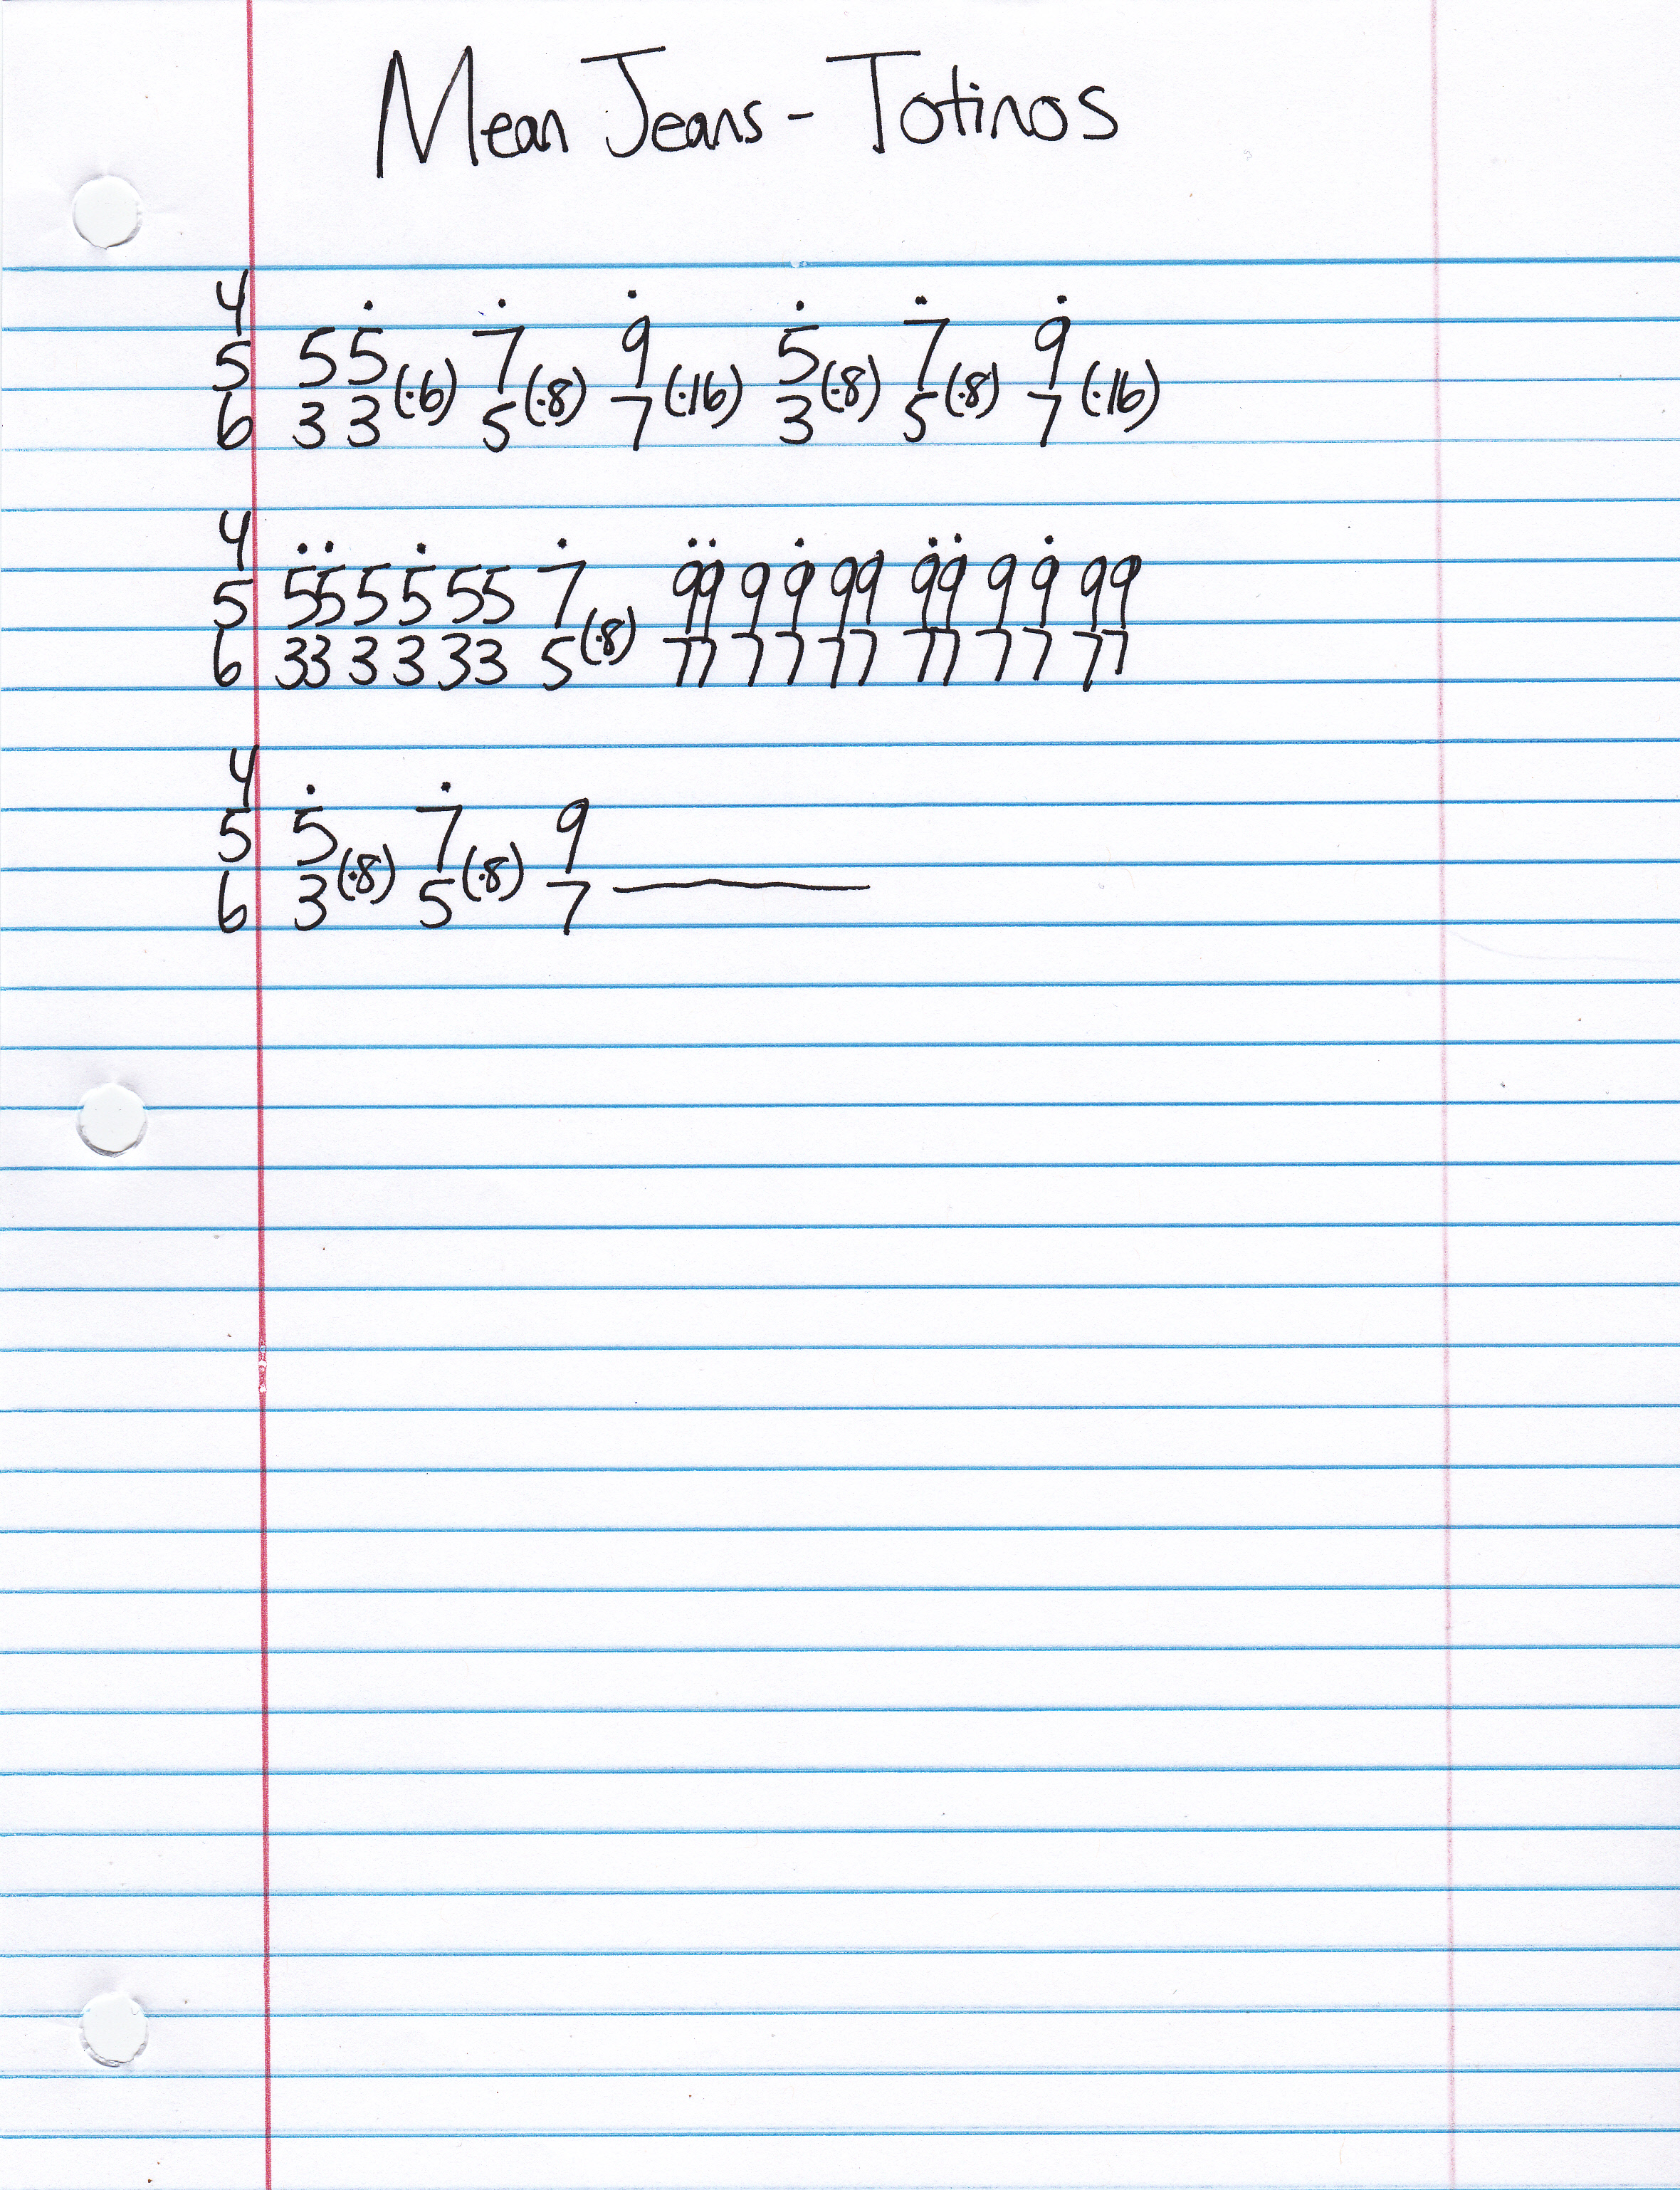 Mean Jeans - Totinos
4
5 5 5 (·6) 7 (·8) 9 (·16) 5 (·8) 7 (·8) 9 (·16)
6 3 3 5 7 3 5 7
4
5 55 5 5 55 7 (·8) 99 9 9 99 99 9 9 99
6 33 3 3 33 5 77 7 7 77 77 7 7 77
4
5 5 (·8) 7 (·8) 9
6 3 5 7